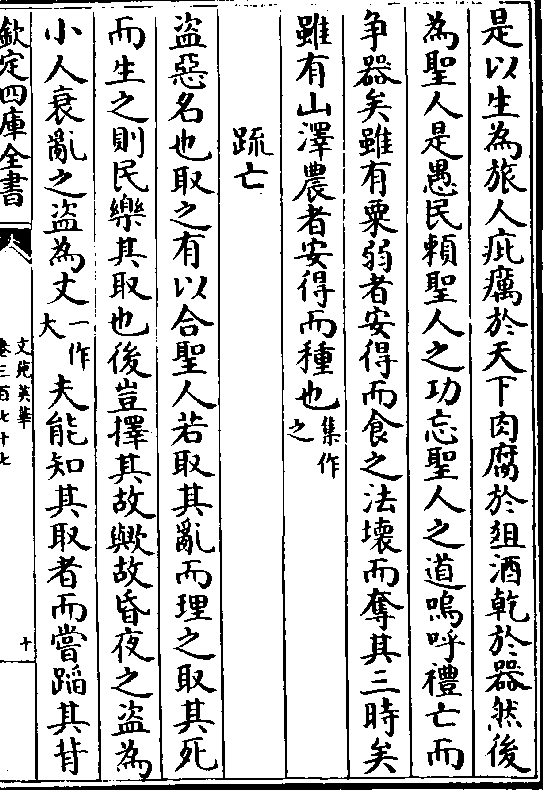 是以生為旅人疵癘於天下肉腐於俎酒乾於器然後
為聖人是愚民賴聖人之功忘聖人之道嗚呼禮亡而
争器矣雖有粟弱者安得而食之法壊而奪其三時矣
雖有山澤農者安得而種也集作之
疏亡
盗惡名也取之有以合聖人若取其亂而理之取其死
而生之則民樂其取也後豈擇其故歟故昏夜之盗為
小人衰亂之盗為丈一作大夫能知其取者而嘗蹈其背
欽定四庫全書
文苑英華
卷三百七十七
十